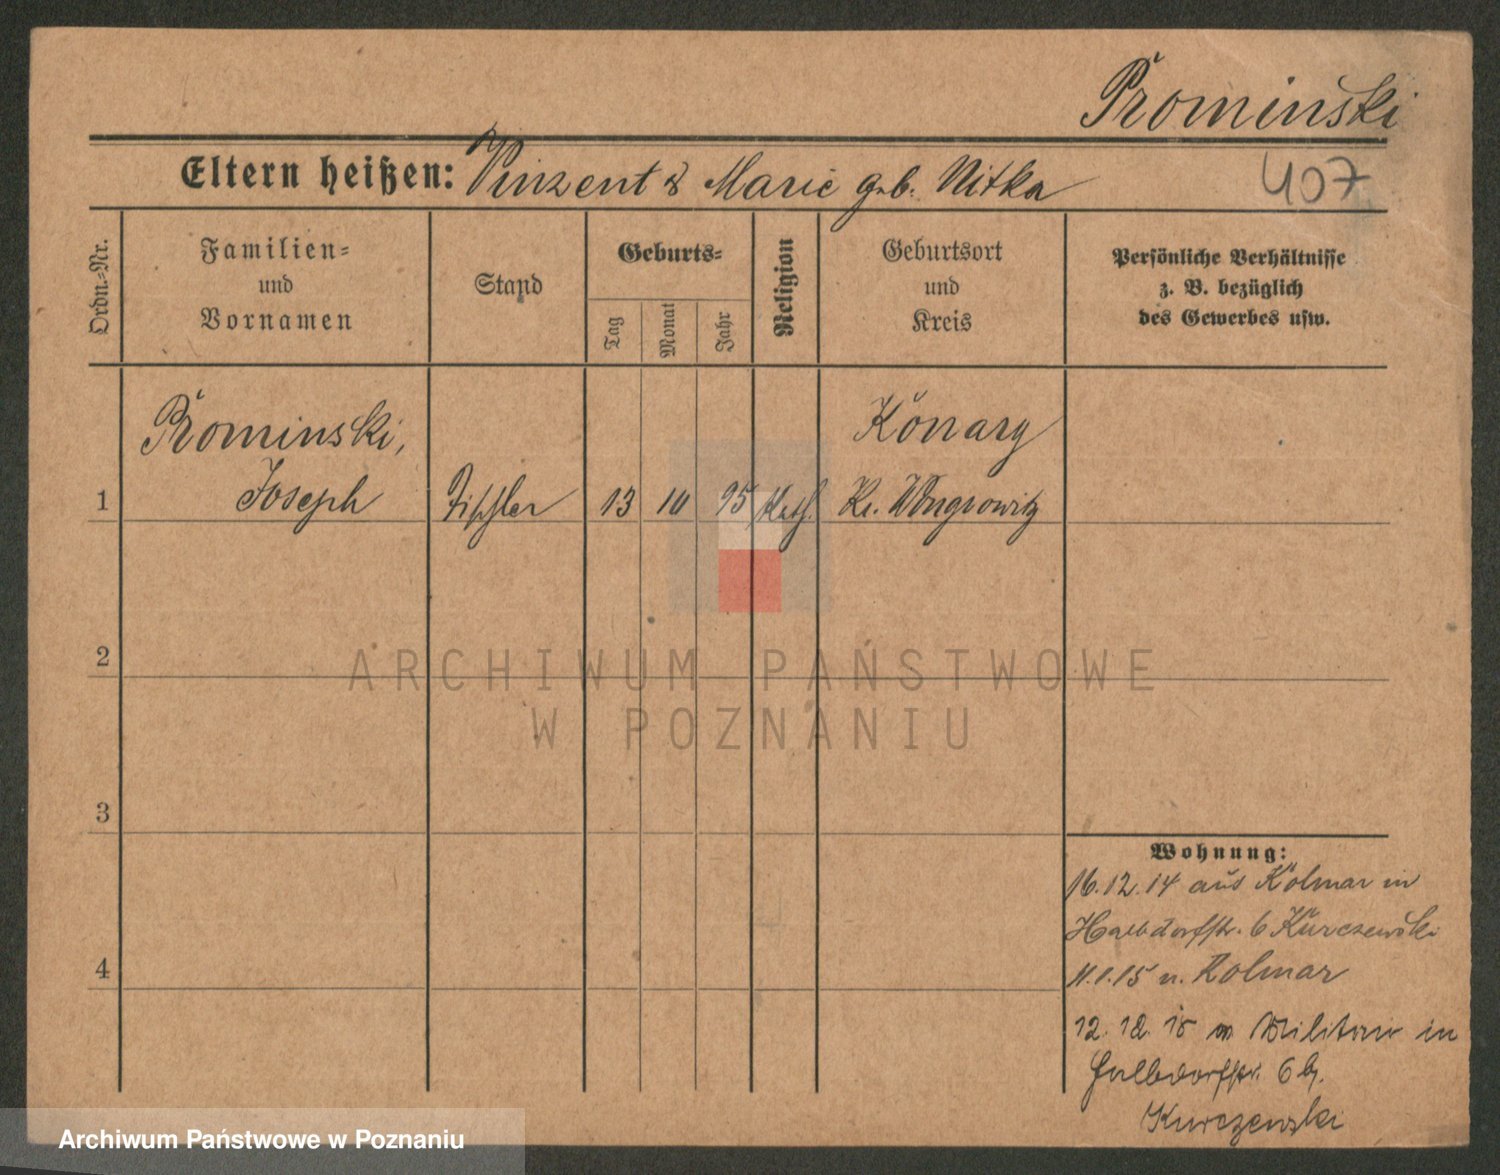 Prominski
Eltern heißen: Vinzent & Marie geb. Nitka
407
Ordn.-Nr.
Familien- und Vornamen
Stand
Geburts-
Tag
Monat
Jahr
Religion
Geburtsort und Kreis
Persönliche Verhältnisse
z. B. bezüglich
des Gewerbes usw.
Prominski,
Konary
1 Joseph Tischler 13 10 95 kath. Kr. Wongrowitz
2
ARCHIWUM PAŃSTWOWE
W POZNANIU
3
Wohnung:
16.12.14 aus Kolmar in
Halbdorfstr. 6 Kurczewski
4
11.1.15 n. Kolmar
12.12.18 Militär in
Halbdorfstr. 6 b.
Kurczewski
Archiwum Państwowe w Poznaniu